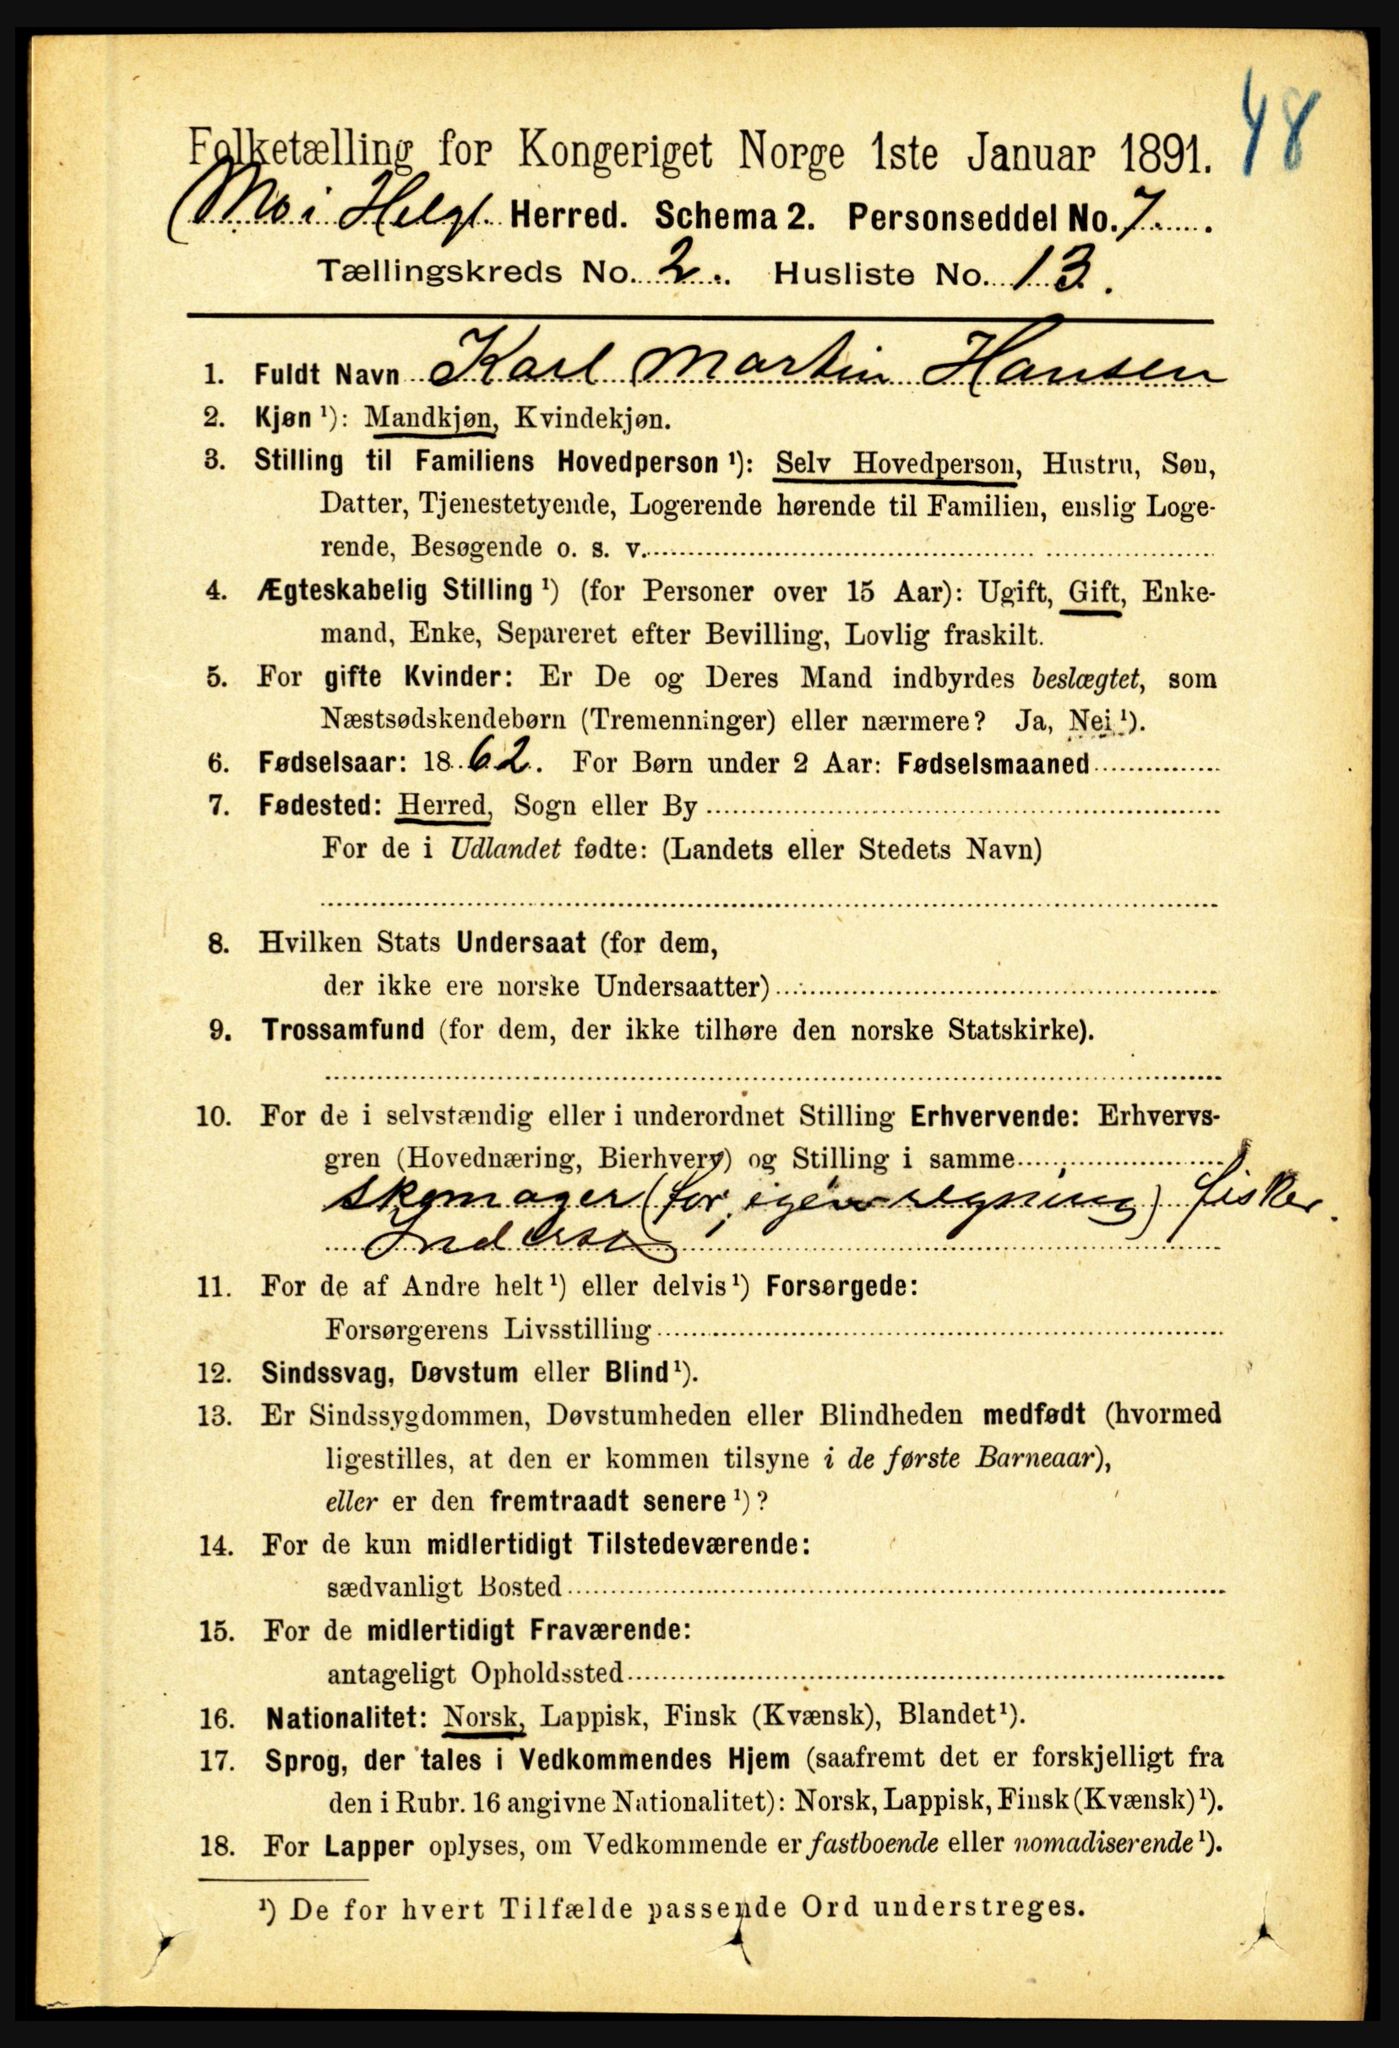 48
Folketælling for Kongeriget Norge 1ste Januar 1891.
Mo i Helgl. Herred. Schema 2. Personseddel No. 7.
Tællingskreds No. 2. Husliste No. 13.
1. Fuldt Navn Karl Martin Hansen
2. Kjøn ¹): Mandkjøn, Kvindekjøn.
3. Stilling til Familiens Hovedperson ¹): Selv Hovedperson, Hustru, Søn,
Datter, Tjenestetyende, Logerende hørende til Familien, enslig Loge-
rende, Besøgende o. s. v.
4. Ægteskabelig Stilling ¹) (for Personer over 15 Aar): Ugift, Gift, Enke-
mand, Enke, Separeret efter Bevilling, Lovlig fraskilt.
5. For gifte Kvinder: Er De og Deres Mand indbyrdes beslægtet, som
Næstsødskendebørn (Tremenninger) eller nærmere? Ja, Nei ¹).
6. Fødselsaar: 1862. For Børn under 2 Aar: Fødselsmaaned
7. Fødested: Herred, Sogn eller By
For de i Udlandet fødte: (Landets eller Stedets Navn)
8. Hvilken Stats Undersaat (for dem,
der ikke ere norske Undersaatter)
9. Trossamfund (for dem, der ikke tilhøre den norske Statskirke).
10. For de i selvstændig eller i underordnet Stilling Erhvervende: Erhvervs-
gren (Hovednæring, Bierhverv) og Stilling i samme
skomager (for egen regning) fisker
11. For de af Andre helt ¹) eller delvis ¹) Forsørgede:
Forsørgerens Livsstilling
12. Sindssvag, Døvstum eller Blind ¹).
13. Er Sindssygdommen, Døvstumheden eller Blindheden medfødt (hvormed
ligestilles, at den er kommen tilsyne i de første Barneaar),
eller er den fremtraadt senere ¹)?
14. For de kun midlertidigt Tilstedeværende:
sædvanligt Bosted
15. For de midlertidigt Fraværende:
antageligt Opholdssted
16. Nationalitet: Norsk, Lappisk, Finsk (Kvænsk), Blandet ¹).
17. Sprog, der tales i Vedkommendes Hjem (saafremt det er forskjelligt fra
den i Rubr. 16 angivne Nationalitet): Norsk, Lappisk, Finsk (Kvænsk) ¹).
18. For Lapper oplyses, om Vedkommende er fastboende eller nomadiserende ¹).
¹) De for hvert Tilfælde passende Ord understreges.